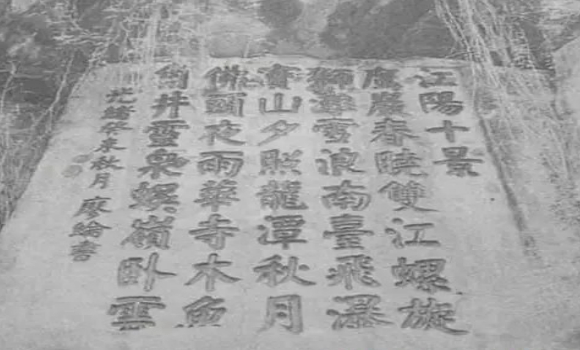 江陽十景
廣慶春曉雙江螺旋
獅灘雪浪南臺飛瀑
寶山夕照龍潭秋月
佛國夜雨華寺木魚
井靈泉嶺臥雲
光緒癸未秋月廖綸書